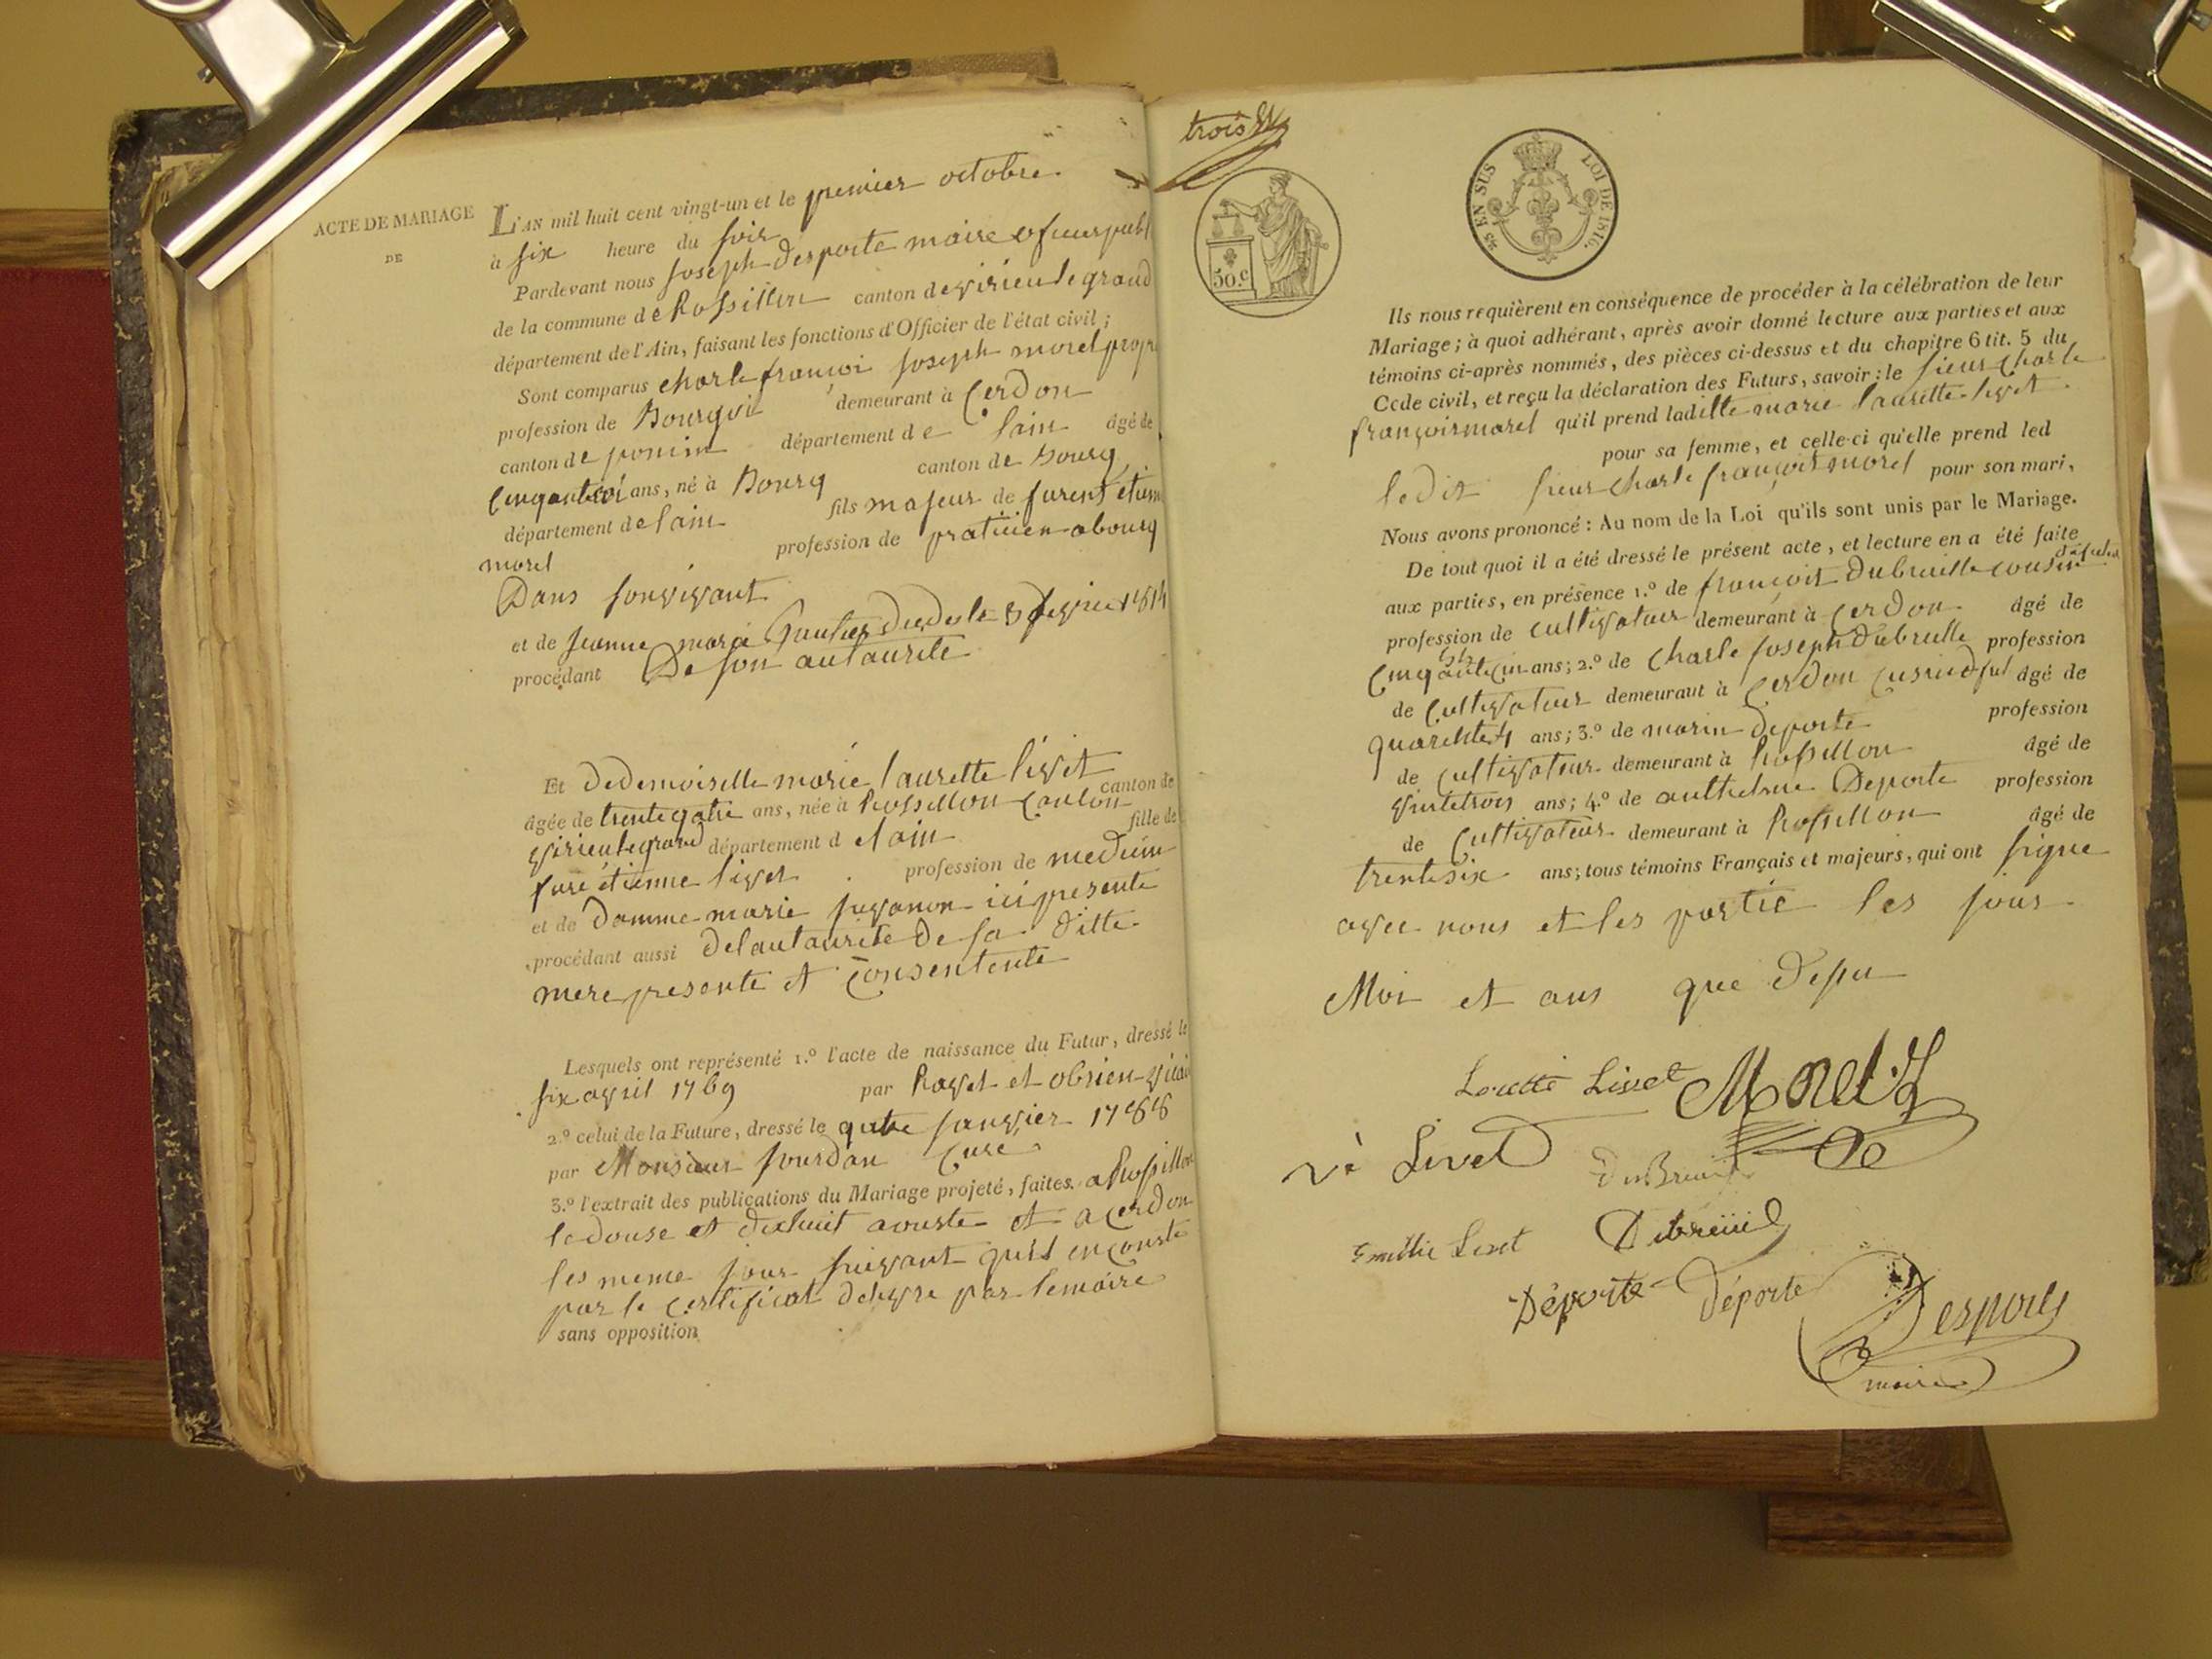 ACTE DE MARIAGE
DE
L'AN mil huit cent vingt-un et le premier octobre
à six heure du soir
Pardevant nous joseph Desporte maire
de la commune de Rossillon canton de virieu le grand
département de l'Ain, faisant les fonctions d'Officier de l'état civil ;
Sont comparus charle françoi joseph morel propr
profession de Bourgoi demeurant à Cerdon
canton de poncin département de lain âgé de
ans, né à Bourg canton de Bourg
département de lain fils majeur de
morel profession de praticien a bourg
Dans son vivant
et de jeanne
procédant De son autaurite
Et dedemoiselle marie laurette livet
âgée de trente quatre ans, née à Rossillon canton canton de
virieu le grand département d elain fille de
etienne livet profession de
et de damme marie juvanon ici presente
procédant aussi delautaurite De sa ditte
mere presente et consentente
Lesquels ont représenté 1.º l'acte de naissance du Futur, dressé le
six avril 1769 par Ravet et
2.º celui de la Future, dressé le janvier 1788
par Monsieur jourdan curé
3.º l'extrait des publications du Mariage projeté, faites a Rossillon
le douse et dixhuit aouste et a cerdon
les meme jour suivant
par le certificat delivre par lemaire
sans opposition
trois
50.c
EN SUS LOI DE 1816.
Ils nous requièrent en conséquence de procéder à la célébration de leur
Mariage ; à quoi adhérant, après avoir donné lecture aux parties et aux
témoins ci-après nommés, des pièces ci-dessus et du chapitre 6 tit. 5 du
Code civil, et reçu la déclaration des Futurs, savoir : le sieur charle
françois morel qu'il prend laditte marie laurette livet
pour sa femme, et celle-ci qu'elle prend led
ledit sieur charle françois morel pour son mari,
Nous avons prononcé : Au nom de la Loi qu'ils sont unis par le Mariage.
De tout quoi il a été dressé le présent acte, et lecture en a été faite
aux parties, en présence 1.º de françois Dubruille cousin
profession de cultivateur demeurant à cerdon âgé de
ans ; 2.º de charle joseph dubruille profession
de cultivateur demeurant à cerdon âgé de
ans ; 3.º de marin deporte profession
de cultivateur demeurant à Rossillon âgé de
vintetrois ans ; 4.º de anthelme Deporte profession
de Cultivateur demeurant à Rossillon âgé de
trente six ans ; tous témoins Français et majeurs, qui ont signe
avec nous et les partie les jour
Moi et ans que desu
Livet Morel
Livet
Emillie Livet Dubreüil
Déporte Déporte Desportes
maire